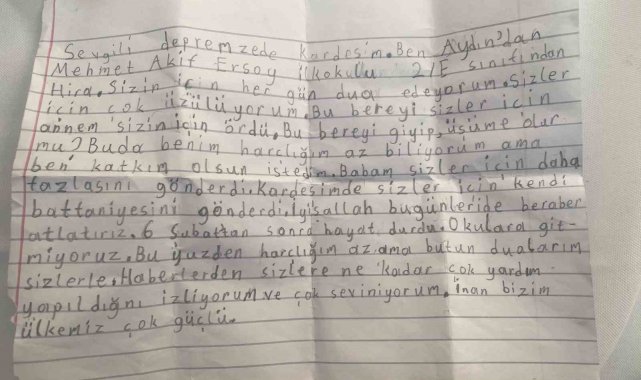 Sevgili depremzede kardeşim. Ben Aydın'dan
Mehmet Akif Ersoy ilkokulu 2/E sınıfından
Hira. Sizin için her gün dua edeyorum. Sizler
için çok üzülüyorum. Bu bereyi sizler için
annem sizin için ördü. Bu bereyi giyip, üşüme olur
mu? Buda benim harçlığım az biliyorum ama
ben katkım olsun istedim. Babam sizler için daha
fazlasını gönderdi. Kardeşimde sizler için kendi
battaniyesini gönderdi. İyişallah bugünleride beraber
atlatırız. 6 Şubattan sonra hayat durdu. Okulara git-
miyoruz. Bu yüzden harçlığım az ama bütün dualarım
sizlerle. Haberlerden sizlere ne kadar çok yardım
yapıldığnı izliyorum ve çok seviniyorum. İnan bizim
ülkemiz çok güçlü.